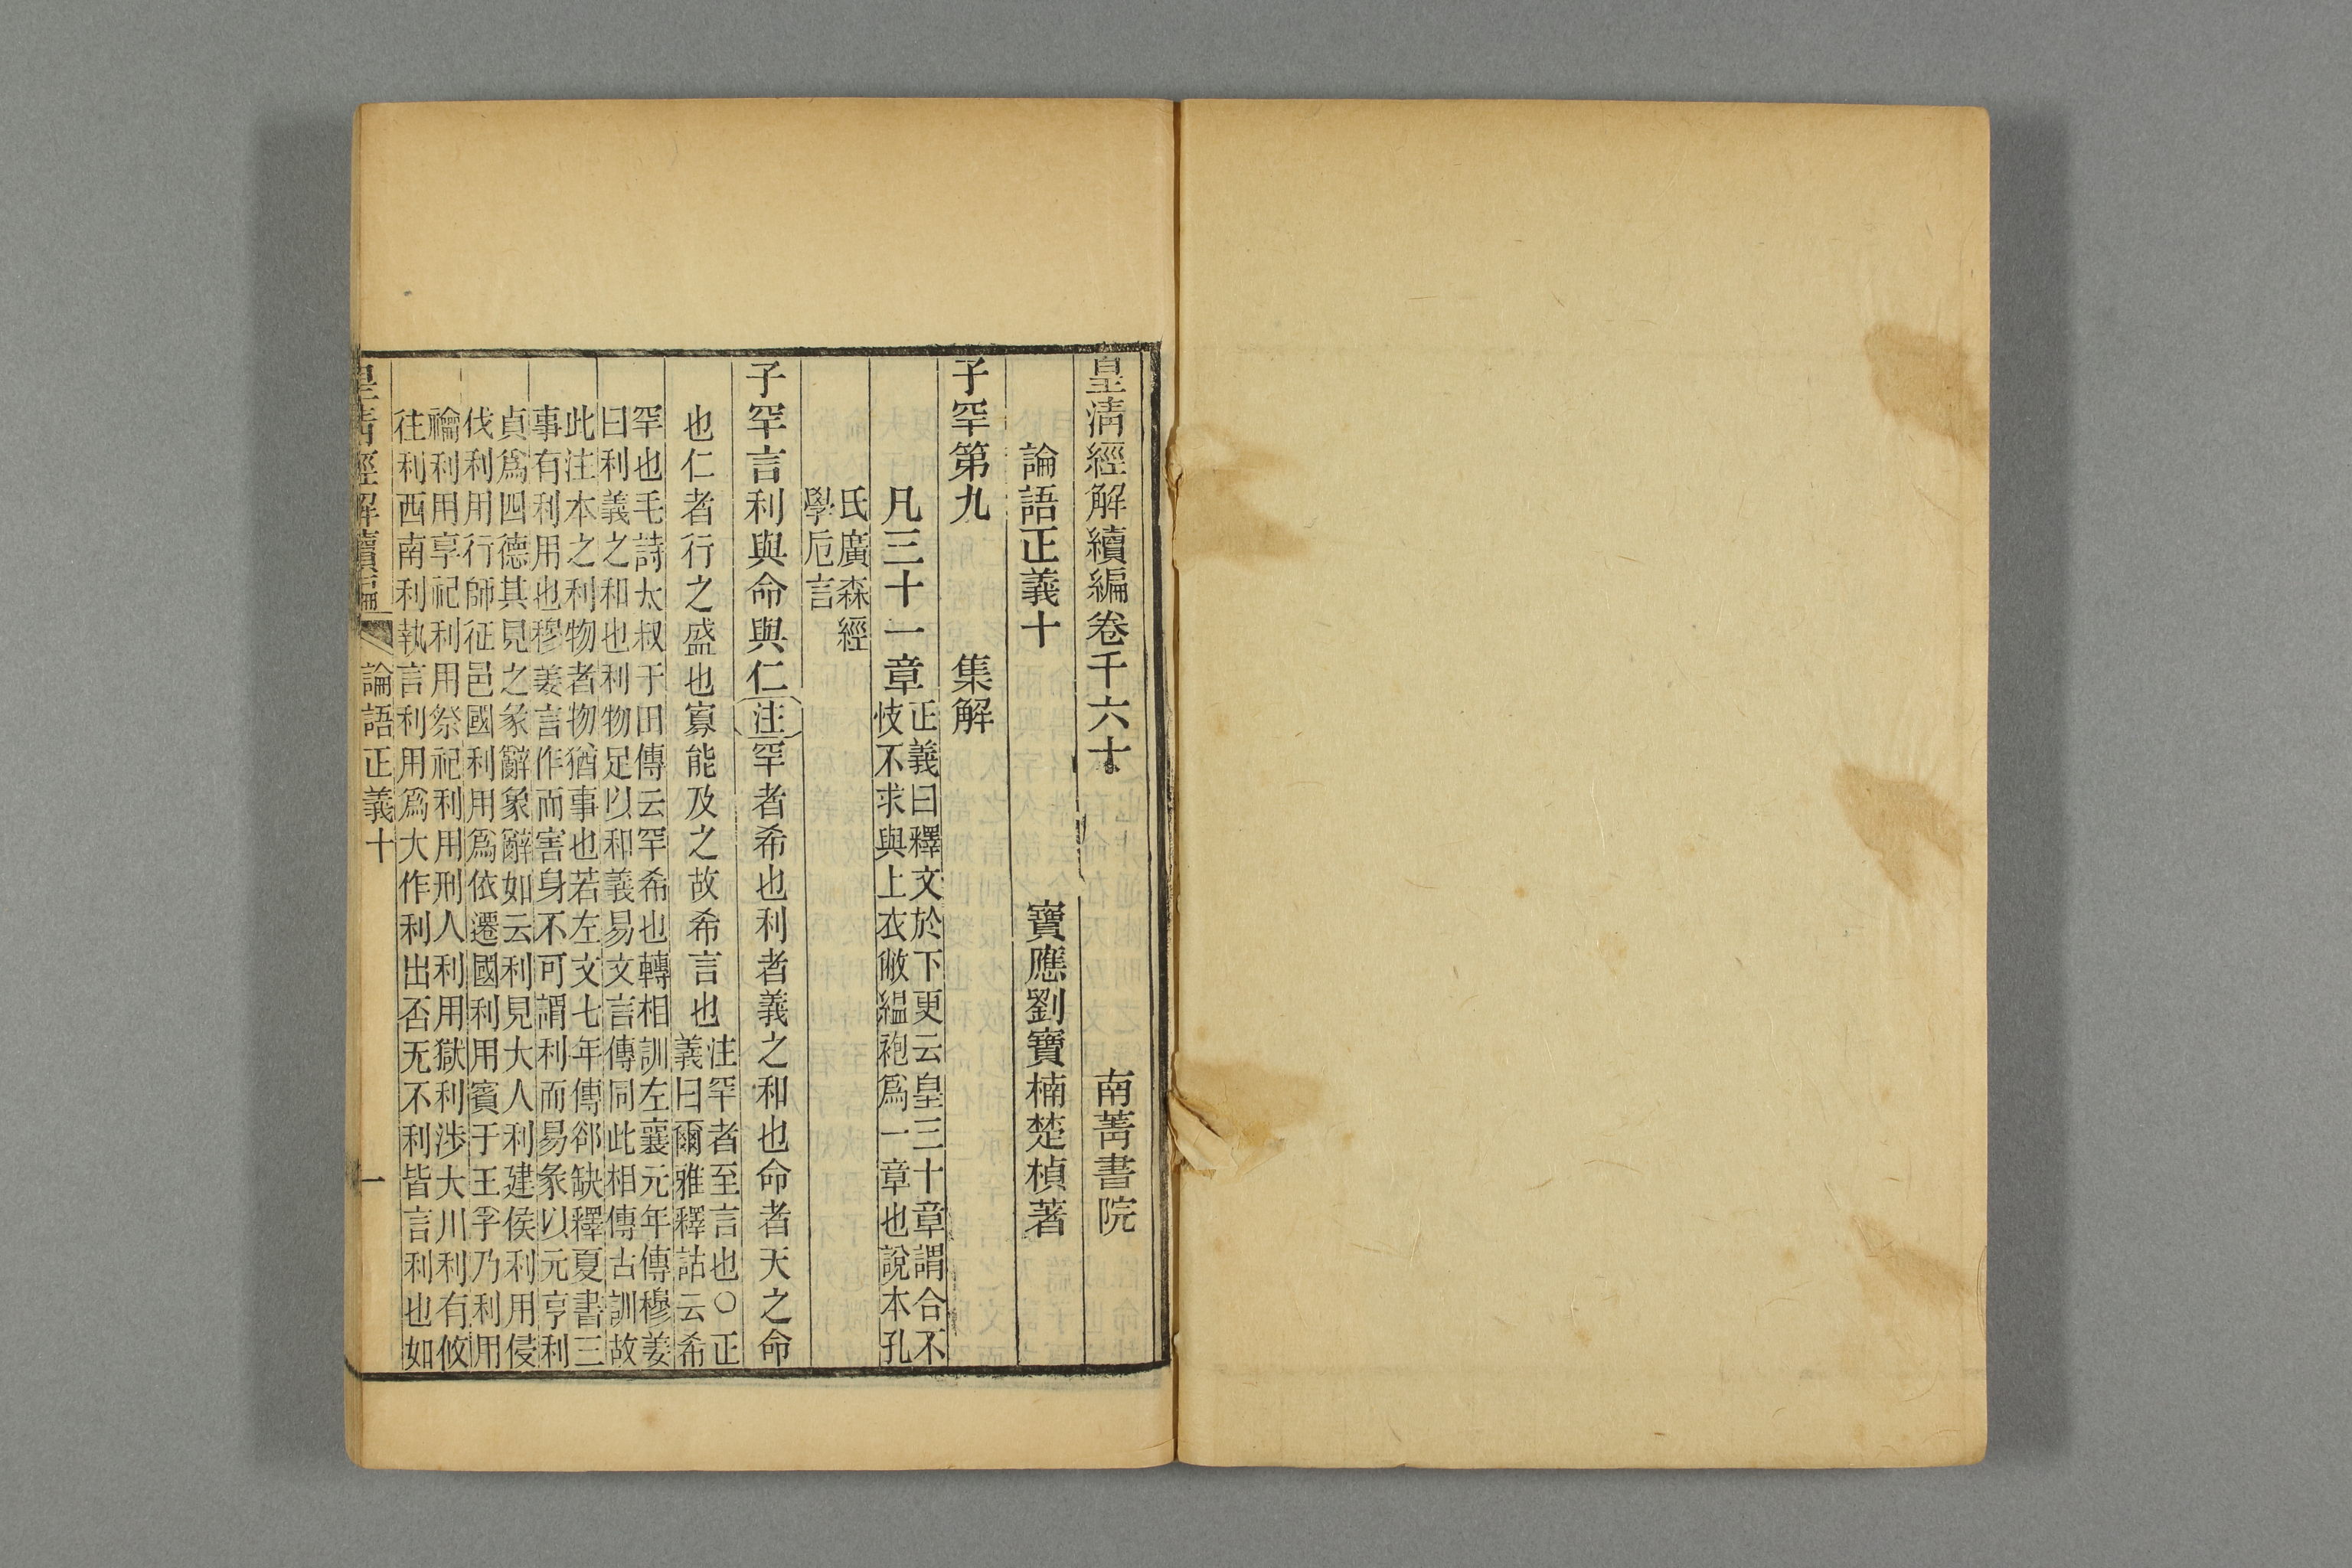 皇清經解續編卷千六十 南菁書院
論語正義十 寶應劉寶楠楚楨著
子罕第九 集解
凡三十一章
正義曰釋文於下更云皇三十章謂合不
忮不求與上衣敝縕袍爲一章也說本孔
氏廣森經
學卮言
子罕言利與命與仁注罕者希也利者義之和也命者天之命
也仁者行之盛也寡能及之故希言也
注罕者至言也○正
義曰爾雅釋詁云希
罕也毛詩大叔于田傳云罕希也轉相訓左襄元年傳穆姜
曰利義之和也利物足以和義易文言傳同此相傳古訓故
此注本之利物者物猶事也若左文七年傳郤缺釋夏書三
事有利用也穆姜言作而害身不可謂利而易彖以元亨利
貞爲四德其見之彖辭象辭如云利見大人利建侯利用侵
伐利用行師征邑國利用爲依遷國利用賓于王孚乃利用
禴利用享祀利用祭祀利用刑人利用獄利涉大川利有攸
往利西南利執言利用爲大作利出否无不利皆言利也如
皇清經解續編 論語正義十 一